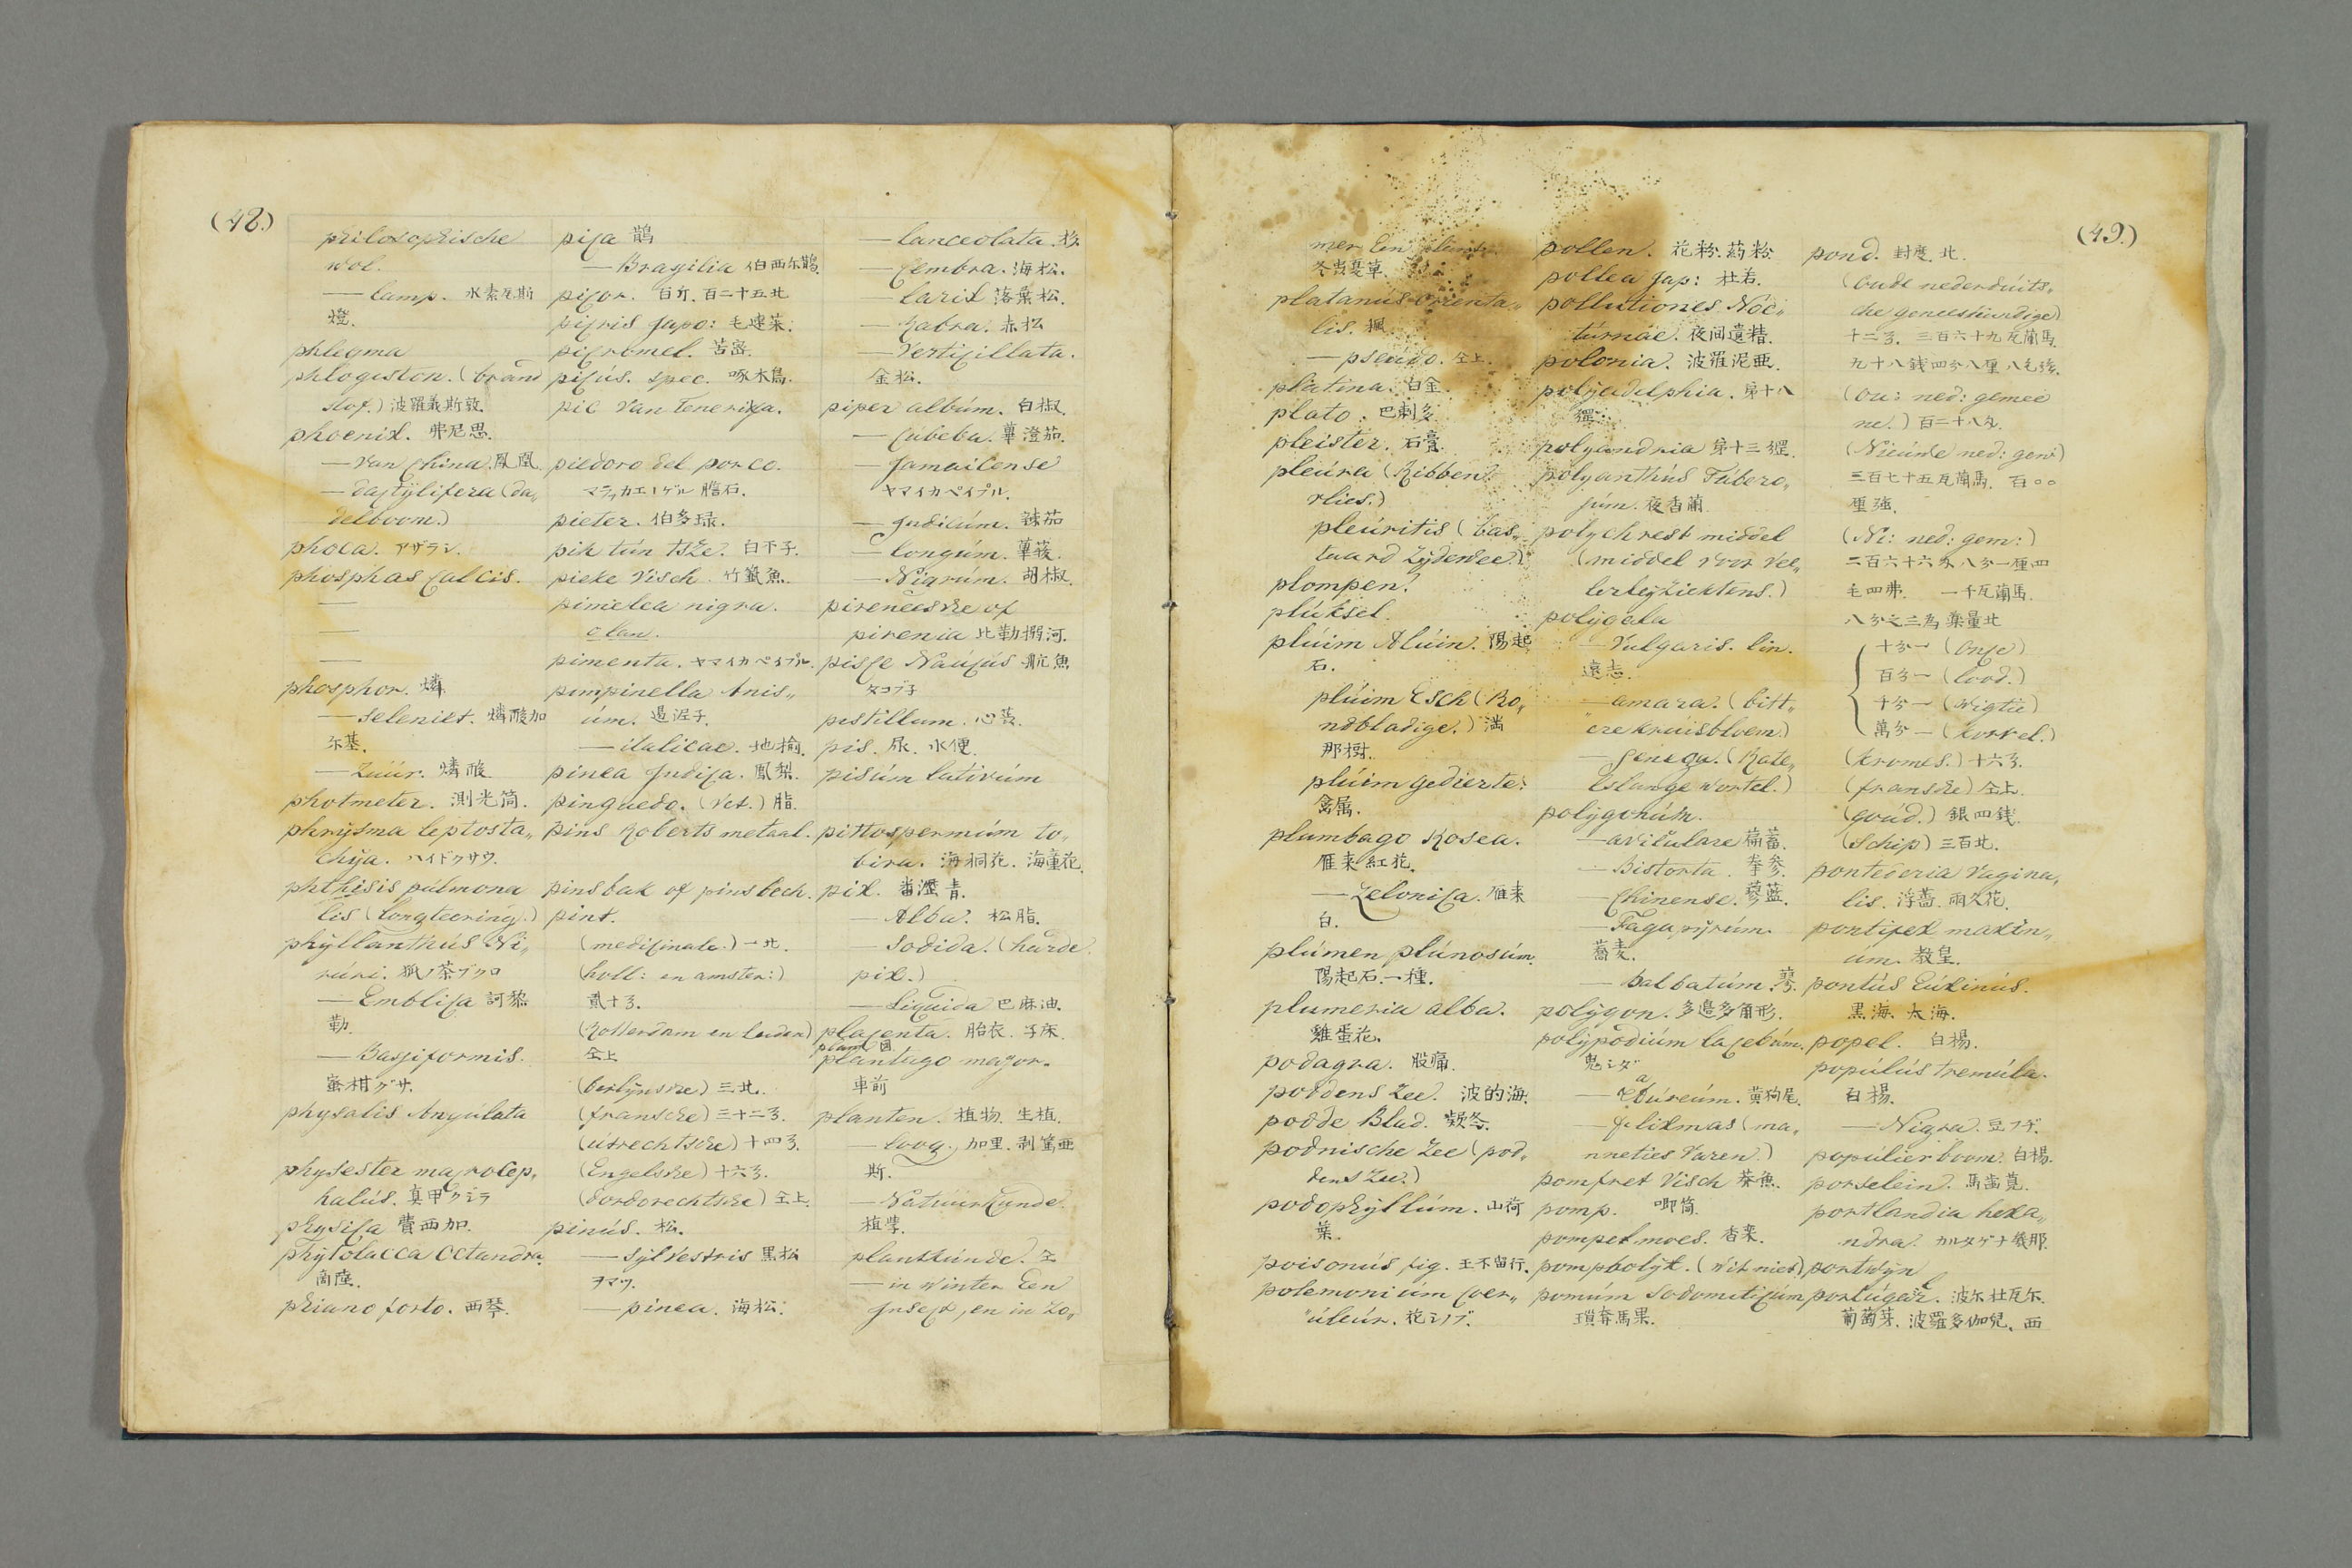 (48.)
philosophische
wol.
— lamp. 水素瓦斯
燈.
phlegma
phlogiston. (brand
stof.) 波羅義斯敦.
phoenix. 弗尼思.
— van China. 鳳凰.
— dactÿlifera (da„
delboom.)
phoca. アザラシ.
phosphas calcis.
—
—
—
phosphor. 燐
— seleniet. 燐酸加
尓基.
— Zúúr. 燐酸
photmeter. 測光筒.
phrÿsma leptosta„
chÿa. ハイドクサウ.
phthisis púlmona
lis (longteering.)
phÿllanthús Ni„
rúri. 狐ノ茶ブクロ
— Emblica 訶黎
勒.
— Bacciformis.
蜜柑グサ.
physalis Angúlata
physester macrocep„
halús. 真甲クジラ
physica 費西加.
phÿtolacca Octandra.
商陸.
phiano forto. 西琴.
pica 鵲
— Brasilia 伯西尓鵲.
picor. 百斤. 百二十五北
picris Japo: 毛連菜.
picromel. 苦蜜.
picús. spec. 啄木鳥.
pic van Teneriffa.
piedoro del porco.
マラッカエノゲル 膽石.
pieter. 伯多琭.
pik tún tsze. 白不子.
pieke visch. 竹籤魚.
pimelea nigra.
olan.
pimenta. ヤマイカペイプル.
pimpinella Anis„
úm. 遏泥子.
— italicae. 地揄.
pinea Judica. 鳳梨.
pinguedo. (Vet.) 脂.
pins Roberts metaal.
pinsbak of pinsbech.
pint.
(medicinale.) 一北.
(holl: en amster:)
貳十彡.
(Rotterdam en leiden)
仝上
(berlÿnsche) 三北.
(fransche) 三十二彡.
(útrechtsche) 十四彡.
(Engelsche) 十六彡.
(dordorechtsche) 仝上.
pinús. 松.
— Sÿlvestris 黒松
ヲマツ.
— pinea. 海松.
— lanceolata 杉
— Cembra. 海松.
— larix 落葉松.
— Rabra. 赤松
— Verticillata.
金松.
piper albúm. 白椒.
— Cubeba. 蓽澄茄.
— Jamaicense
ヤマイカペイプル.
— Judicúm. 辣茄
— longúm. 蓽茇.
— Nigrúm. 胡椒.
pireneesche of
pirenia 比勒搦河.
pisce Naúcús 航魚
タコブ子
pistillum. 心蕋.
pis. 尿. 水便.
pisúm lativúm
pittospermúm to„
bira. 海桐花. 海童花.
pix. 畨瀝青.
— Alba. 松脂.
— Sodida. (harde
pix.)
— Liquida 巴麻油.
placenta. 胎衣. 子床.
plantúgo major.
車前
planten. 植物. 生植.
— loog. 加里. 剥篤亜
斯.
— Natuurkunde.
植学.
plantkúnde. 仝
— in winter Een
Insect, en in Zo„
(49.)
mer Een plant.
冬虫夏草.
platanús orienta„
lis. 楓
— pseudo. 仝上.
platina. 白金.
plato. 巴剌多
pleister. 石膏.
pleúra (Ribben
vlies.)
pleúritis (bas„
taard Zÿdewee.)
plompen.
plúksel.
plúim Alúin. 陽起
石.
plúim Esch (Ro„
ndbladige.) 満
那樹.
plúim gedierte.
禽属.
plumbago Rosea.
雁来紅花.
— Zelonica. 雁来
白.
plúmen plúnosúm.
陽起石一種.
plumeria alba.
雞蛋花.
podagra. 股痛.
poddens Zee. 波的海.
podde Blad. 欵冬.
podnische Zee (pod„
dens Zee.)
podophÿllúm. 山荷
葉.
poisonús fig. 王不留行.
polemoniúm Coer„
úleúr. 花シノブ.
pollen. 花粉. 葯粉.
pollea Jap: 杜若.
pollutiones Noc„
túrnae. 夜间遺精.
polonia. 波羅泥亜.
polÿadelphia. 第十八
polyandria 第十三綱.
polyanthús Túbero„
súm. 夜香蘭
polychrest middel
(middel voor vee„
lerleÿ Ziektens.)
polÿgala
— Vulgaris. lin.
遠志.
— amara. (bitt„
ere kruisbloem.)
— Senega. (Rate„
lslange wortel.)
polÿgonúm.
— aviculare 萹蓄.
— Bistorta. 拳参.
— Chinense. 蓼藍.
— Fagopÿrúm.
蕎麦.
— balbatúm. 蓼.
polÿgon. 多邉多角形.
鬼シダ
— Aúreúm. 黄狗尾.
— filixmas (ma„
nneties Varen.)
pomfret Visch 茶魚.
pomp. 喞筒.
pompelmoes. 香栾.
pompholÿx. (wit niet)
pomúm Sodomiticúm
瑣奪馬果.
pond. 封度. 北.
(Oude nederdúits„
che geneeskundige)
十二彡. 三百六十九瓦蘭馬.
九十八銭四分八厘八毛強.
(ou: ned: gemee
ne.) 百二十八匁.
(Nieúwe ned: gene)
三百七十五瓦蘭馬. 百〇〇
(Ni: ned: gem:)
毛四弗. 一千瓦蘭馬.
八分之三為薬量北
十分一 (Onçe)
百分一 (lood.)
千分一 (wigtie)
萬分一 (korrel.)
(kromes.) 十六彡.
(fransche) 仝上.
(goúd.) 銀四銭.
(Schip) 三百北.
pontederia Vagina„
lis. 浮薔. 雨久花.
pontifex maxim„
úm. 教皇.
pontús Eúxinús.
黒海. 大海.
popel. 白楊.
popúlús tremúla.
白楊.
— Nigra. 豆フヂ.
popúlierboom. 白楊.
porselein. 馬歯莧.
portlandia hexa„
ndra. カルタゲナ幾那.
portwÿn
portúgal. 波尓杜瓦尓.
葡萄芽. 波羅多伽兒. 西